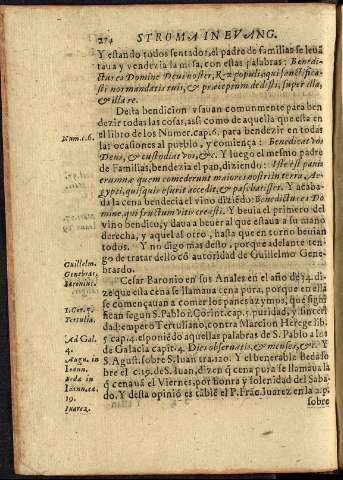 274 STROMA IN EVANG.
Y estando todos sentados, el padre de familias se leuã
taua y vendezia la mesa, con estas palabras: Benedi-
ctus es Domine Deus noster, Rex populi, qui sanctifica-
sti nos mandatis tuis, & præceptum dedisti, super illa,
& illa re.
Desta bendicion vsauan comunmente para ben
dezir todas las cosas, assi como de aquella que esta en
Num.c.6. el libro de los Numer. cap. 6. para bendezir en todas
las ocasiones al pueblo, y comiença: Benedicat vos
Deus, & custodiat vos, &c. Y luego el mesmo padre
de Familias, bendezia el pan, diziendo: Iste est panis
erumnæ quem comederunt maiores nostri in terra, Ae-
gypti, quisquis esurit accedit, & paschatisser. Y acaba-
da la cena bendecia el vino diziẽdo: Benedictus es Do
mine, qui fructum vitis creasti. Y beuia el primero del
vino bendito, y daua a beuer al que estaua a su mano
derecha, y aquel al otro, hasta que en torno beuian
todos. Y no digo mas desto, porque adelante ten-
go de tratar dello cõ autoridad de Guillelmo Gene-
Guillelm. brardo.
Genebrar. Cesar Baronio en sus Anales en el año de 34. di-
Baronius. ze que esta cena se llamaua cena pura, porque en ella
se començauan a comer los panes azymos, que signi-
1. Cor. 5. fican segun S. Pablo 1. Corint. cap. 5. puridad, y sinceri
Tertulia. dad; empero Tertuliano, contra Marcion Herege lib.
Ad Gal. 5 cap. 4. esponiẽdo aquellas palabras de S. Pablo a los
4. de Galacia capit. 4. Dies obseruatis, & menses, &c. Y
Augu. in S. August. sobre S. Iuan tra. 120. Y el benerable Beda so
Ioann. bre el c. 19. de S. Iuan, dizen q̃ cena pura se llamaua la
Beda in q̃ cenauã el Viernes, por honra y solenidad del Saba-
Ioann. ca. do. Y desta opinion es tãbiẽ el P. Frãc. Iuarez en la 2. p.
19. sobre
Iuarez.